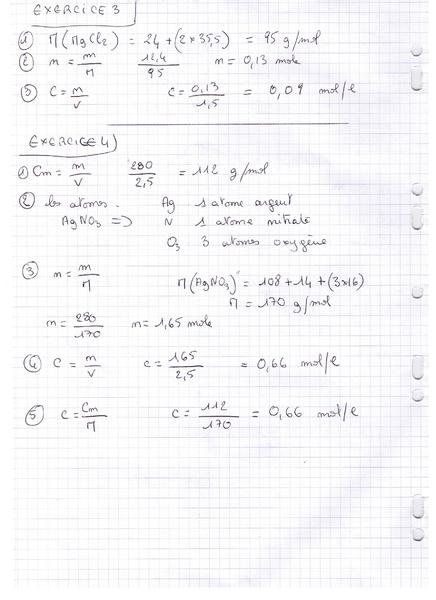 EXERCICE 3
① M(MgCl₂) = 24 + (2×35,5) = 95 g/mol
② n = m/M 12,4/95 n = 0,13 mole
③ C = n/V C = 0,13/1,5 = 0,09 mol/l
EXERCICE 4)
① Cm = m/V 280/2,5 = 112 g/mol
② les atomes. Ag 1 atome argent
AgNO₃ => N 1 atome nitrate
O₃ 3 atomes oxygène
③ n = m/M M(AgNO₃) = 108 + 14 + (3×16)
M = 170 g/mol
n = 280/170 n = 1,65 mole
④ C = n/V C = 165/2,5 = 0,66 mol/l
⑤ C = Cm/M C = 112/170 = 0,66 mol/l